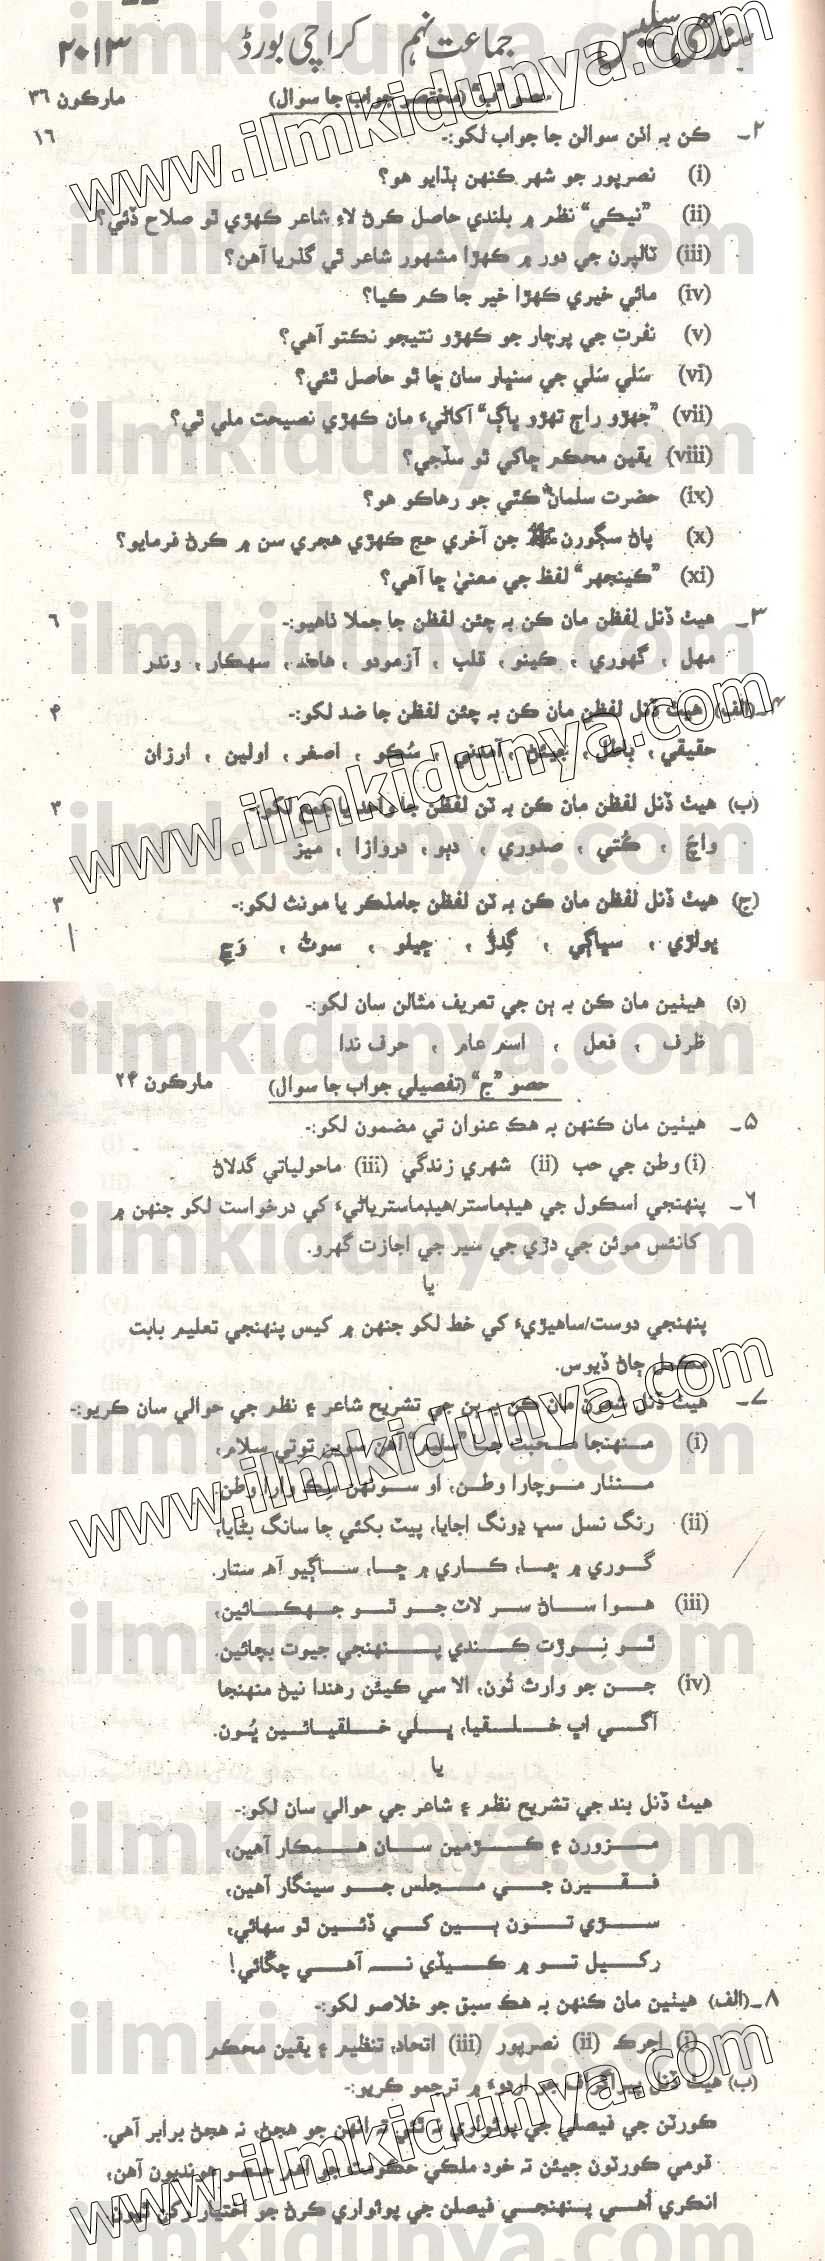 سندھی سلیس جماعت نہم کراچی بورڈ ۲۰۱۳
حصو "ب" (مختصر جواب جا سوال) مارکون ۳۶
۲۔ ڪن به اٺن سوالن جا جواب لکو:- ۱۶
(i) نصرپور جو شهر ڪنهن ٻڌايو هو؟
(ii) ”نيڪي“ نظم ۾ بلندي حاصل ڪرڻ لاءِ شاعر ڪهڙي ٿو صلاح ڏئي؟
(iii) ٽالپرن جي دور ۾ ڪهڙا مشهور شاعر ٿي گذريا آهن؟
(iv) مائي خيري ڪهڙا خير جا ڪم ڪيا؟
(v) نفرت جي پرچار جو ڪهڙو نتيجو نڪتو آهي؟
(vi) سَلي سَلي جي سنڀار سان ڇا ٿو حاصل ٿئي؟
(vii) ”جهڙو راڄ تهڙو ڀاڳ“ آکاڻيءَ مان ڪهڙي نصيحت ملي ٿي؟
(viii) يقين محڪم ڇاکي ٿو سڏجي؟
(ix) حضرت سلمانؓ ڪٿي جو رهاڪو هو؟
(x) پاڻ سڳورن ﷺ جن آخري حج ڪهڙي هجري سن ۾ ڪرڻ فرمايو؟
(xi) ”ڪينجهر“ لفظ جي معنيٰ ڇا آهي؟
۳۔ هيٺ ڏنل لفظن مان ڪن به چئن لفظن جا جملا ٺاهيو:- ۶
مهل ، گهوري ، ڪينو ، قلب ، آزمودو ، هاڃ ، سهڪار ، وندر
۴۔(الف) هيٺ ڏنل لفظن مان ڪن به چئن لفظن جا ضد لکو:- ۴
حقيقي ، باطل ، جيئن ، آمدني ، سُڪو ، اصغر ، اولين ، ارزان
(ب) هيٺ ڏنل لفظن مان ڪن به ٽن لفظن جا واحد يا جمع لکو:- ۳
واڇَ ، ڪُتي ، صندوري ، دٻو ، دروازا ، ميز
(ج) هيٺ ڏنل لفظن مان ڪن به ٽن لفظن جا مذڪر يا مونث لکو:- ۳
ڀولڙي ، سڀاڳي ، گِدڙُ ، ڇيلو ، سوٽُ ، وَڇِ
(د) هيٺين مان ڪن به ٻن جي تعريف مثالن سان لکو:-
ظرف ، فعل ، اسم عام ، حرف ندا
حصو ”ج“ (تفصيلي جواب جا سوال) مارکون ۲۴
۵۔ هيٺين مان ڪنهن به هڪ عنوان تي مضمون لکو:-
(i) وطن جي حب (ii) شهري زندگي (iii) ماحولياتي گدلاڻ
۶۔ پنهنجي اسڪول جي هيڊماستر/هيڊماسترياڻيءَ کي درخواست لکو جنهن ۾
کانئس موئن جي دڙي جي سير جي اجازت گهرو.
يا
پنهنجي دوست/ساهيڙيءَ کي خط لکو جنهن ۾ کيس پنهنجي تعليم بابت
مڪمل ڄاڻ ڏيوس.
۷۔ هيٺ ڏنل شعرن مان ڪن به ٻن جي تشريح شاعر ۽ نظم جي حوالي سان ڪريو:-
(i) منهنجا محبت جا ”سليم“ آهن سوين توتي سلام،
منٺار موچارا وطن، او سونهن سڪ وارا وطن
(ii) رنگ نسل سڀ ڍونگ اجايا، پيٽ بکئي جا سانگ بڻايا،
گوري ۾ ڇا، ڪاري ۾ ڇا، ساڳيو آهه ستار.
(iii) هوا ساڻ سر لاٽ جو ٿو جهڪائين،
ٿو نِوڙت ڪندي پنهنجي جيوت بچائين.
(iv) جن جو وارث تُون، الا سي ڪيئن رهندا نيڻ منهنجا
آگي اڀ خلقيا، ڀلي خلقيائين ڀُون.
يا
هيٺ ڏنل بند جي تشريح نظم ۽ شاعر جي حوالي سان لکو:-
مزورن ۽ ڪڙمين سان همڪار آهين،
فقيرن جي مجلس جو سينگار آهين،
سڙي تون ٻين کي ڏئين ٿو سهائي،
رکيل تو ۾ ڪيڏي نه آهي چڱائي!
۸۔(الف) هيٺين مان ڪنهن به هڪ سبق جو خلاصو لکو:-
(i) اجرڪ (ii) نصرپور (iii) اتحاد، تنظيم ۽ يقين محڪم
(ب) هيٺ ڏنل پيراگراف جو اردوءَ ۾ ترجمو ڪريو:-
ڪورٽن جي فيصلي جي پوئواري نه ٿئي ته انهن جو هجڻ، نه هجڻ برابر آهي.
قومي ڪورٽون جيئن ته خود ملڪي حڪومت جو اهم حصو هونديون آهن،
انڪري اُهي پنهنجي فيصلن جي پوئواري ڪرڻ جو اختيار رکن ٿيون
www.ilmkidunya.com